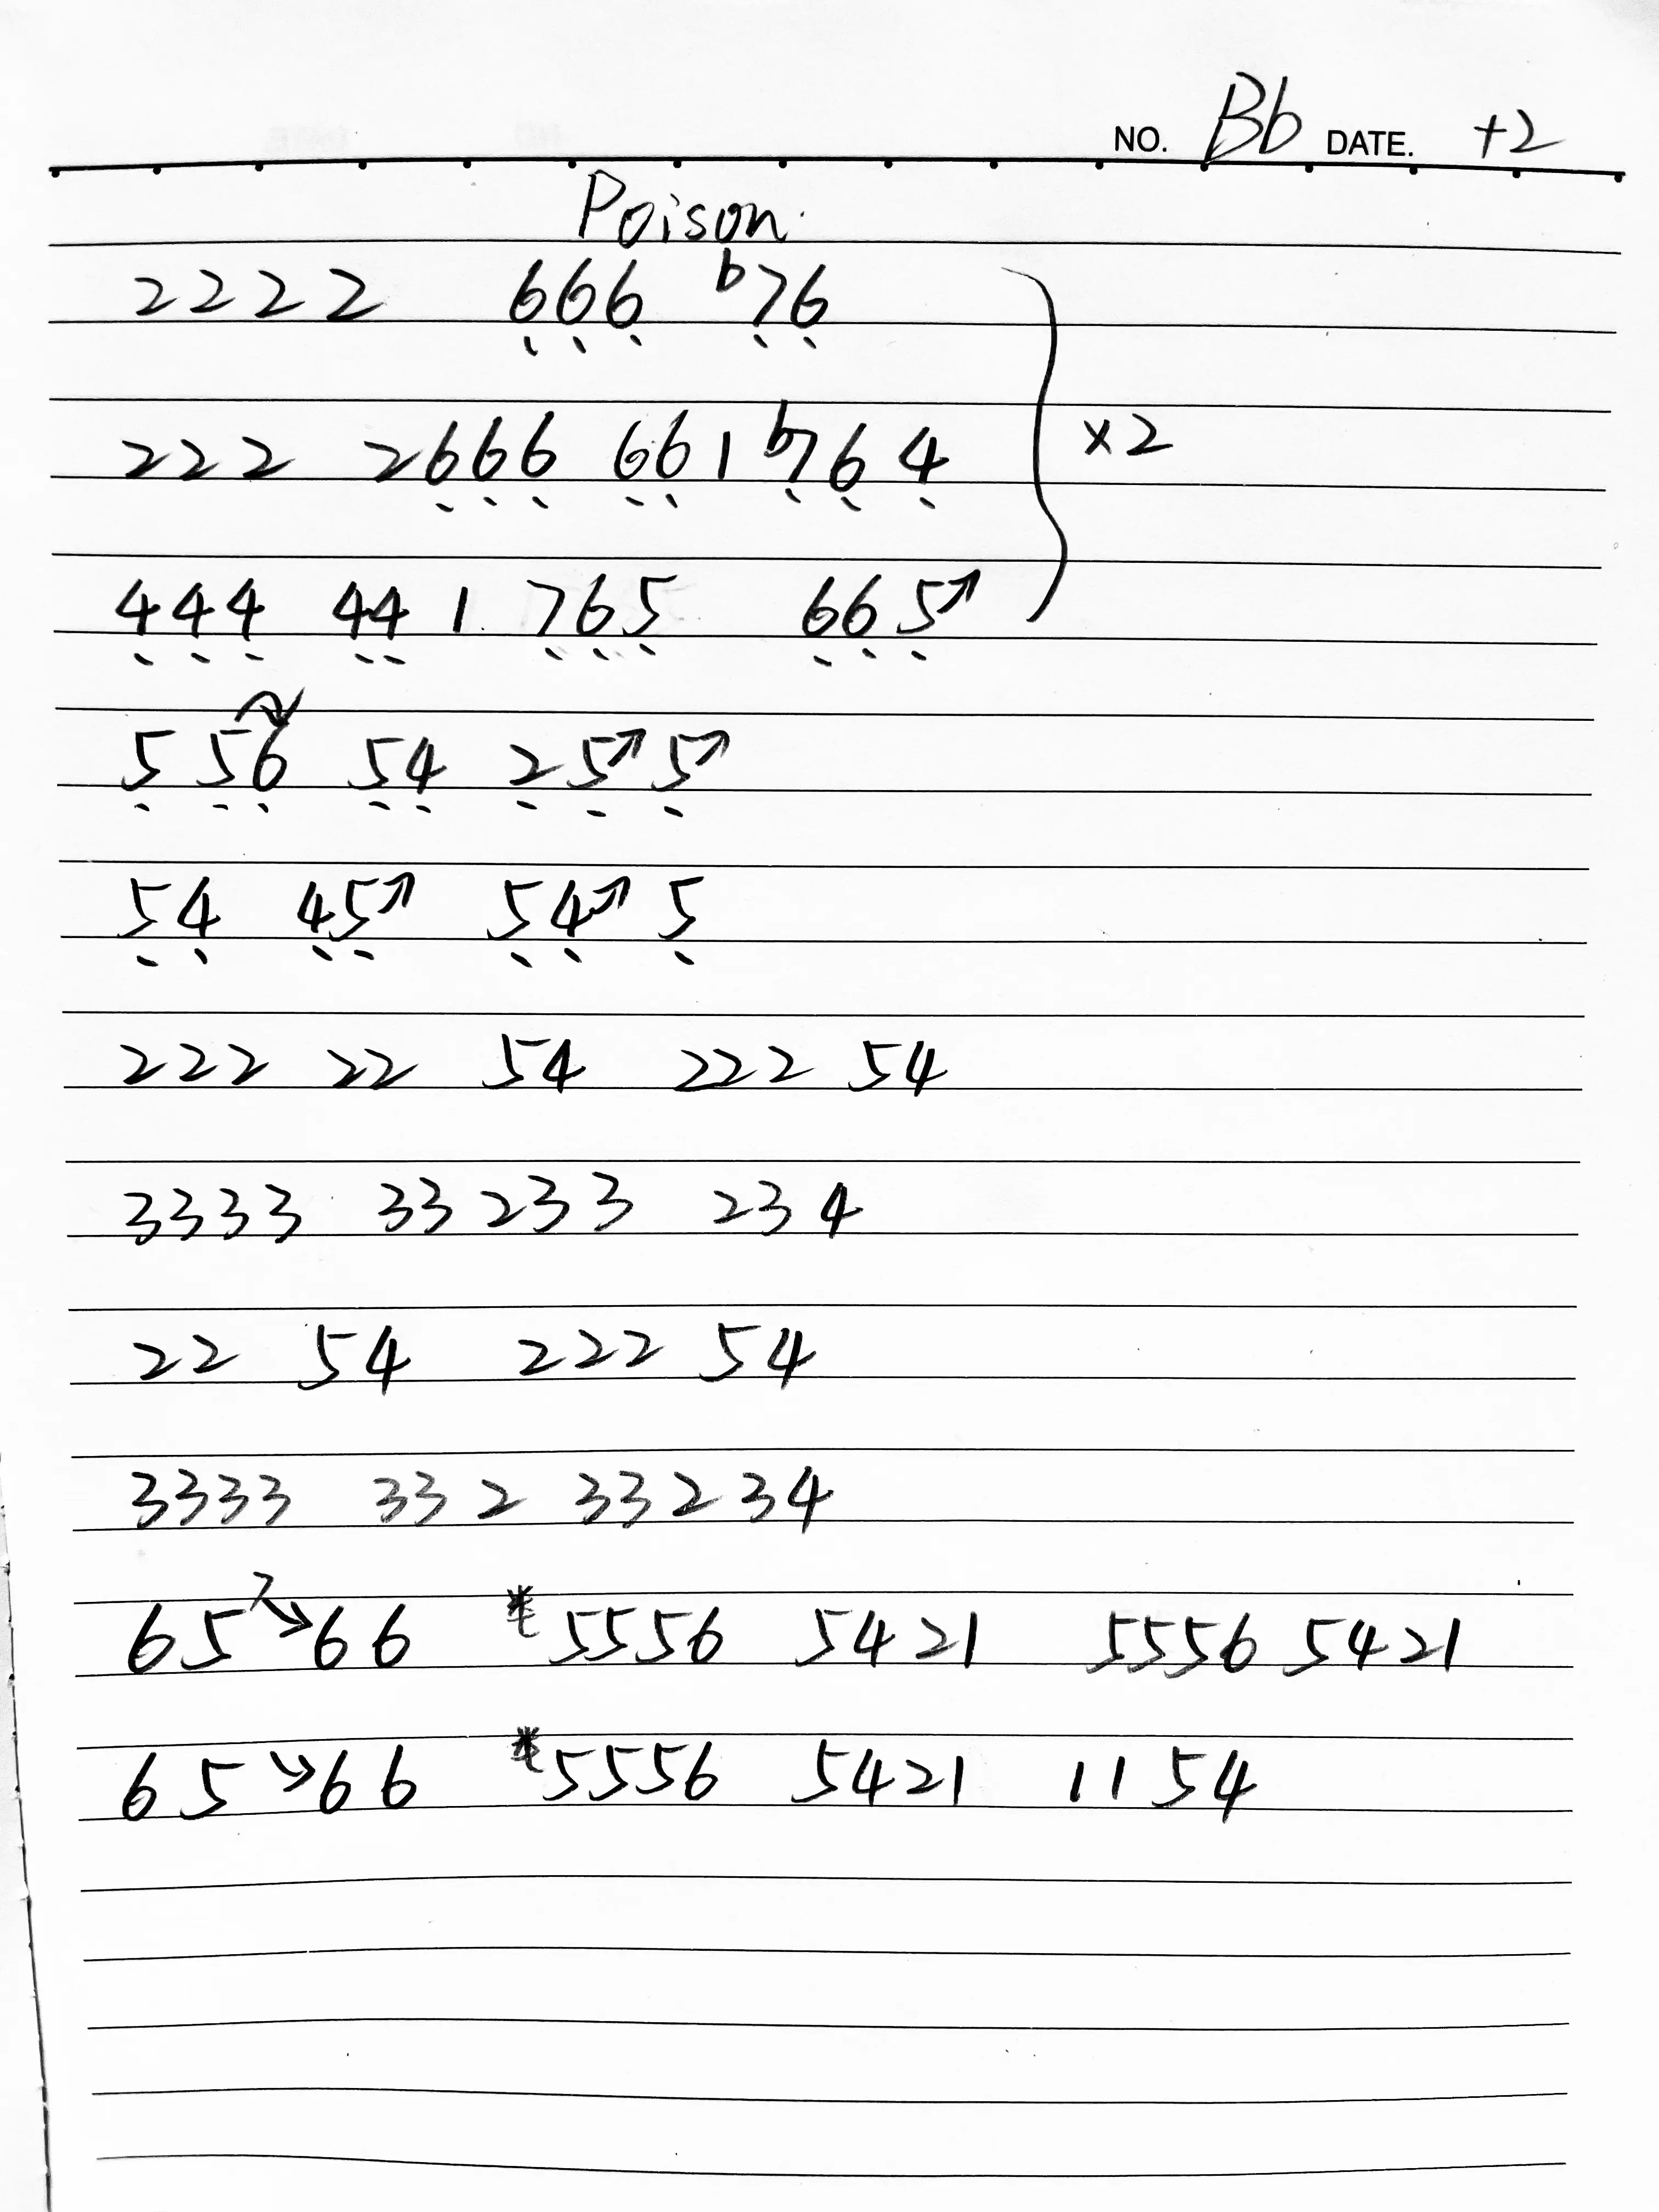 NO. Bb DATE. +2
Poison.
2222 666 b76
222 2666 661 b764 ×2
444 44 1 765 665↗
5 56 54 2 5↗ 5↗
54 45↗ 54↗ 5
222 22 54 222 54
3333 33 233 234
22 54 222 54
3333 33 2 33 2 34
65↘66 *5556 5421 5556 5421
65↘66 *5556 5421 11 54